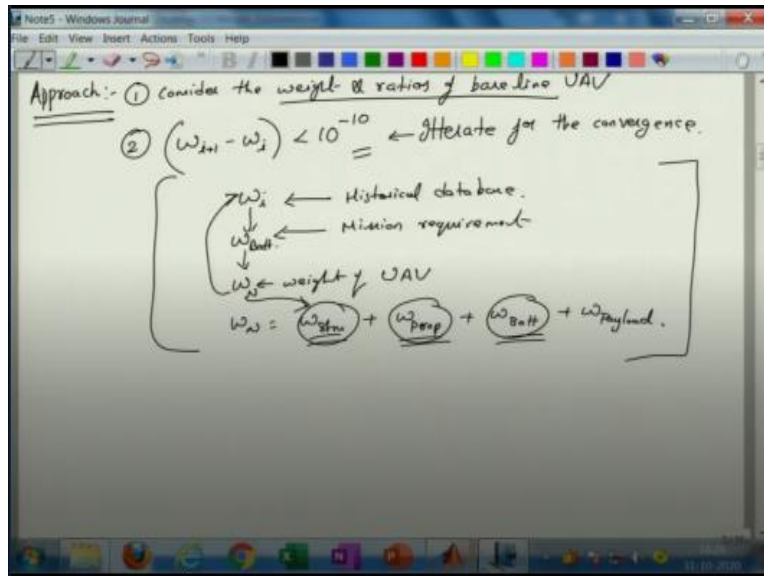 Note5 - Windows Journal
File Edit View Insert Actions Tools Help
Approach:- ① consider the weight & ratios of base line UAV
② (ω_{i+1} - ω_i) < 10^{-10} ← Itterate for the convergence.
ω_i ← Historical database.
↓
ω_{Batt.} ← Mission requirement
↓
ω_N ← weight of UAV
ω_N = ω_{Stru} + ω_{Prop} + ω_{Batt} + ω_{Payload}.
11-10-2020